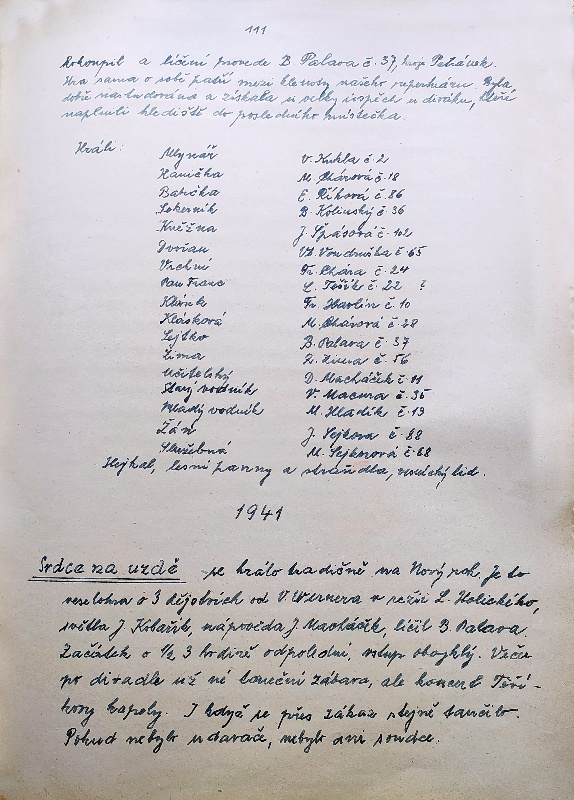 111
Kohoupil a líčení provede B. Palava č. 37, hraje Petránek.
Hra sama o sobě patří mezi klenoty našeho repertoáru. Byla
dobře nastudována a získala si velký úspěch u diváků, kteří
naplnili hlediště do posledního místečka.
Hráli:
Mlynář V. Kukla č. 2
Hanička M. Chárová č. 18
Babička E. Říhová č. 86
Sokerník B. Kolinský č. 36
Kněžna J. Špásová č. 102
Dvořan Vl. Vondruška č. 65
Vrchní Fr. Chára č. 24
Pan Franc L. Tošík č. 22 ?
Klásek Fr. Havlín č. 10
Klásková M. Chárová č. 28
Lejtko B. Palava č. 37
Zima Z. Zima č. 56
Učitelský D. Macháček č. 11
Starý vodník V. Macura č. 35
Mladý vodník M. Hladík č. 19
Žán J. Sejkora č. 88
Služebná M. Sejkorová č. 68
Hejkal, lesní panny a strašidla, vesnický lid.
1941
Srdce na uzdě se hrálo tradičně na Nový rok. Je to
veselohra o 3 dějstvích od V. Wernera v režii L. Holického,
světla J. Kolařík, nápověda J. Macháček, líčil B. Palava.
Začátek o 1/2 3 hodině odpolední, vstup obvyklý. Večer
po divadle už né taneční zábava, ale koncert Toší-
kovy kapely. I když se přes zákaz stejně tančilo.
Pokud nebylo udavače, nebylo ani soudce.